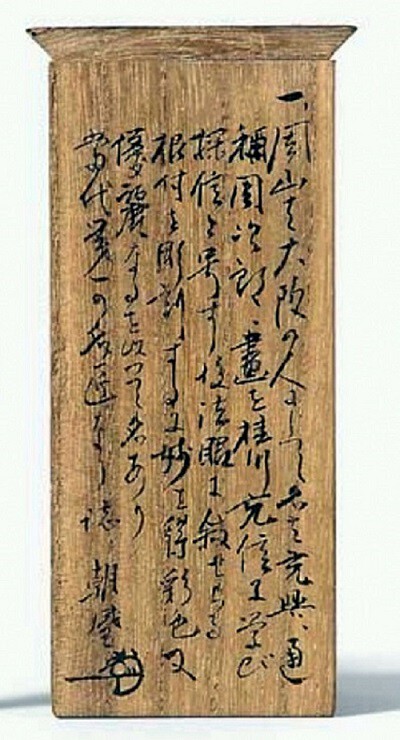 一、周山は大阪の人にして名を充興、通
稱周次郎、畫を桂川充信に学び
探信と号す後法眼に叙せらる
根付を彫刻するに妙を得彩色又
優麗なるを以て名あり
当代第一の名匠なり 誌 朝盛